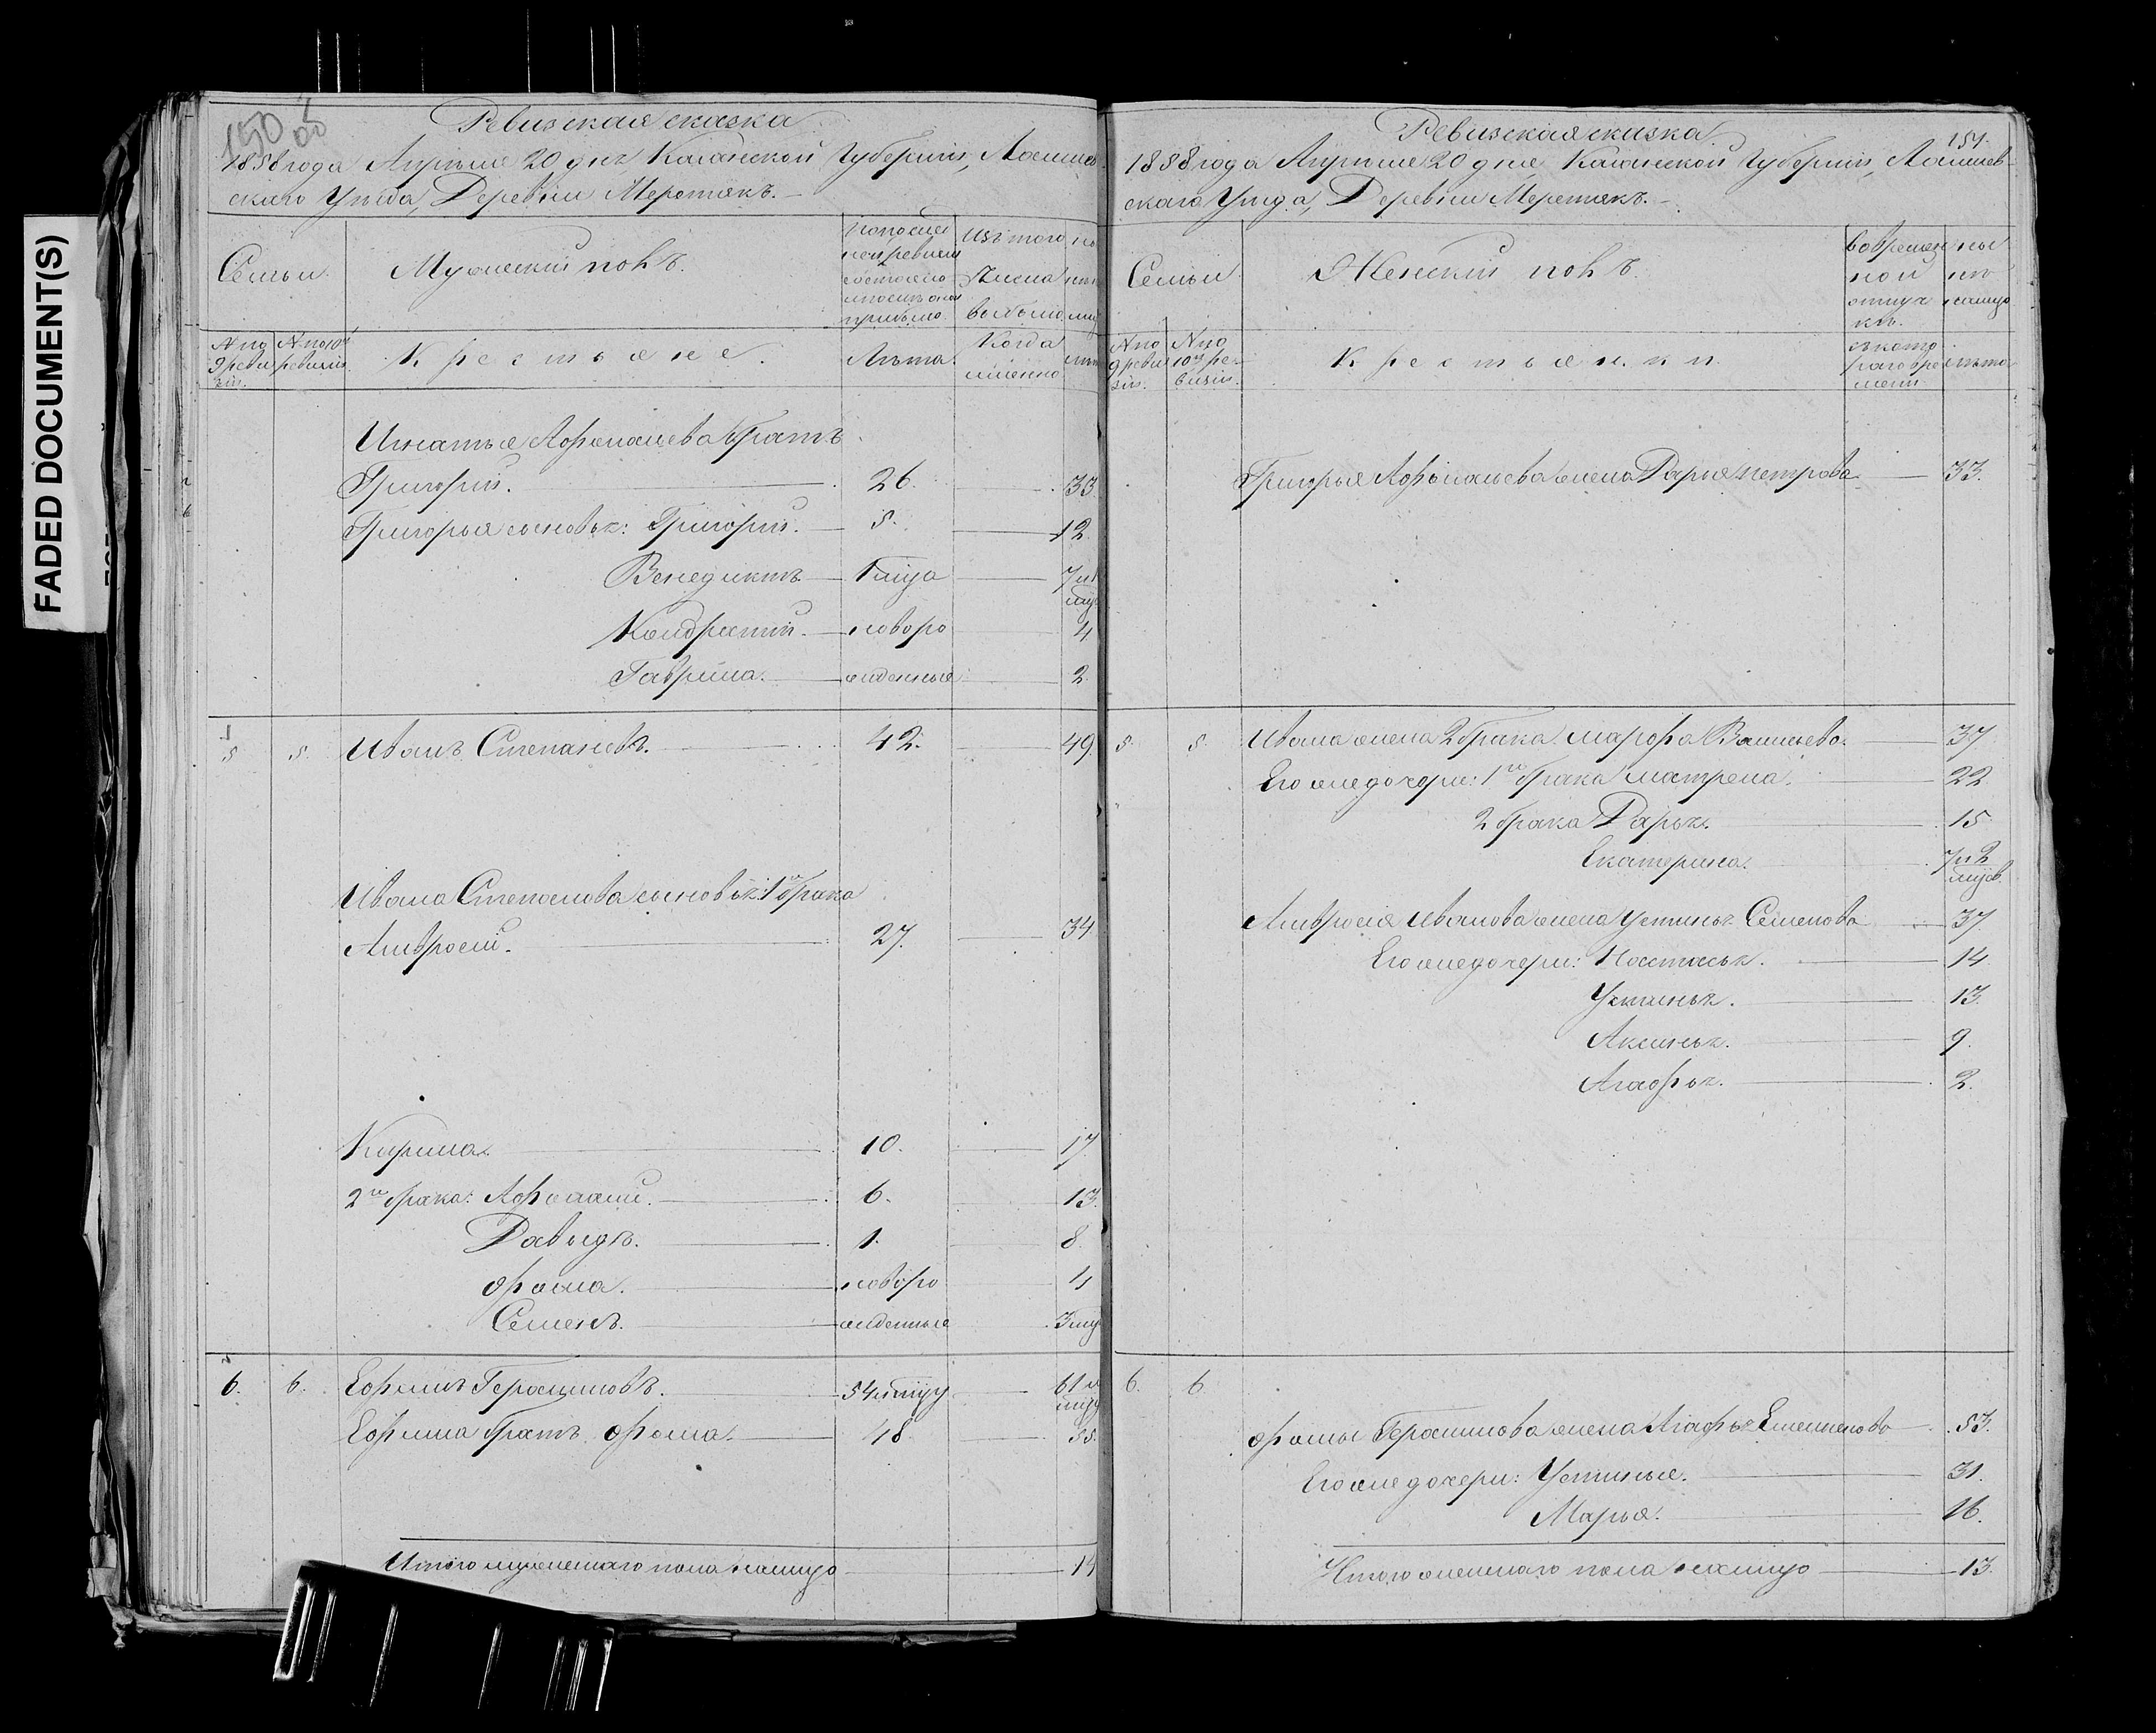 FADED DOCUMENT(S)
150
Ревизская сказка
1858 года Апреля 20 дня Казанской Губернии, Лаишев
скаго Уѣзда, Деревни Меретякъ.
Семьи
Мужескій полъ.
По послед
ней ревизіи
состояло
и после оной
прибыло.
Изъ того
числа
выбыло
№ по
9 реви
зіи.
№ по 10й
ревизіи.
Крестьяне.
Лѣта.
Когда
именно
Игнатья Афонасьева братъ
Григорій. 26. 33.
Григорья сыновья: Григорій. 5. 12.
Венедиктъ 1 мца 7 и 1
мца
Кондратій. новоро 4
Гаврила. жденные 2.
5 5. Иванъ Степановъ. 42. 49.
Ивана Степанова сыновья: 1го брака
Амвросій. 27. 34
Кирила. 10. 17.
2го брака: Афонасій. 6. 13.
Давыдъ. 1. 8.
Фома. новоро 4
Семенъ. жденные 3 мц
6. 6. Ефимъ Герасимовъ. 54 61
Ефима братъ Фома. 48 55.
Итого мужескаго пола налицо 14
Ревизская сказка.
151.
1858 года Апреля 20 дня Казанской Губернии, Лаишев-
скаго Уѣзда, Деревни Меретякъ.
Семьи
Женскій полъ.
Во времен
ной
отлуч
кѣ.
ны
нѣ
налицо.
№ по
9 реви
зіи.
№ по
10й ре-
визіи.
Крестьянки.
съ кото
раго вре
мени
лѣта
Григорья Афонасьева жена Дарья Петрова 33.
5. 5. Ивана жена 2 брака Марфа Васильева. 37
Его же дочери: 1го брака Матрена. 22
2 брака Дарья. 15
Екатерина. 7 и 2
мцов.
Амвросія Иванова жена Устинья Семенова 37.
Его же дочери: Настасья. 14.
Устинья. 13.
Аксинья. 9.
Агафья. 2.
6. 6
Фомы Герасимова жена Агафья Емельянова 53.
Его же дочери: Устинья. 31.
Марья. 16.
Итого женскаго пола налицо 13.